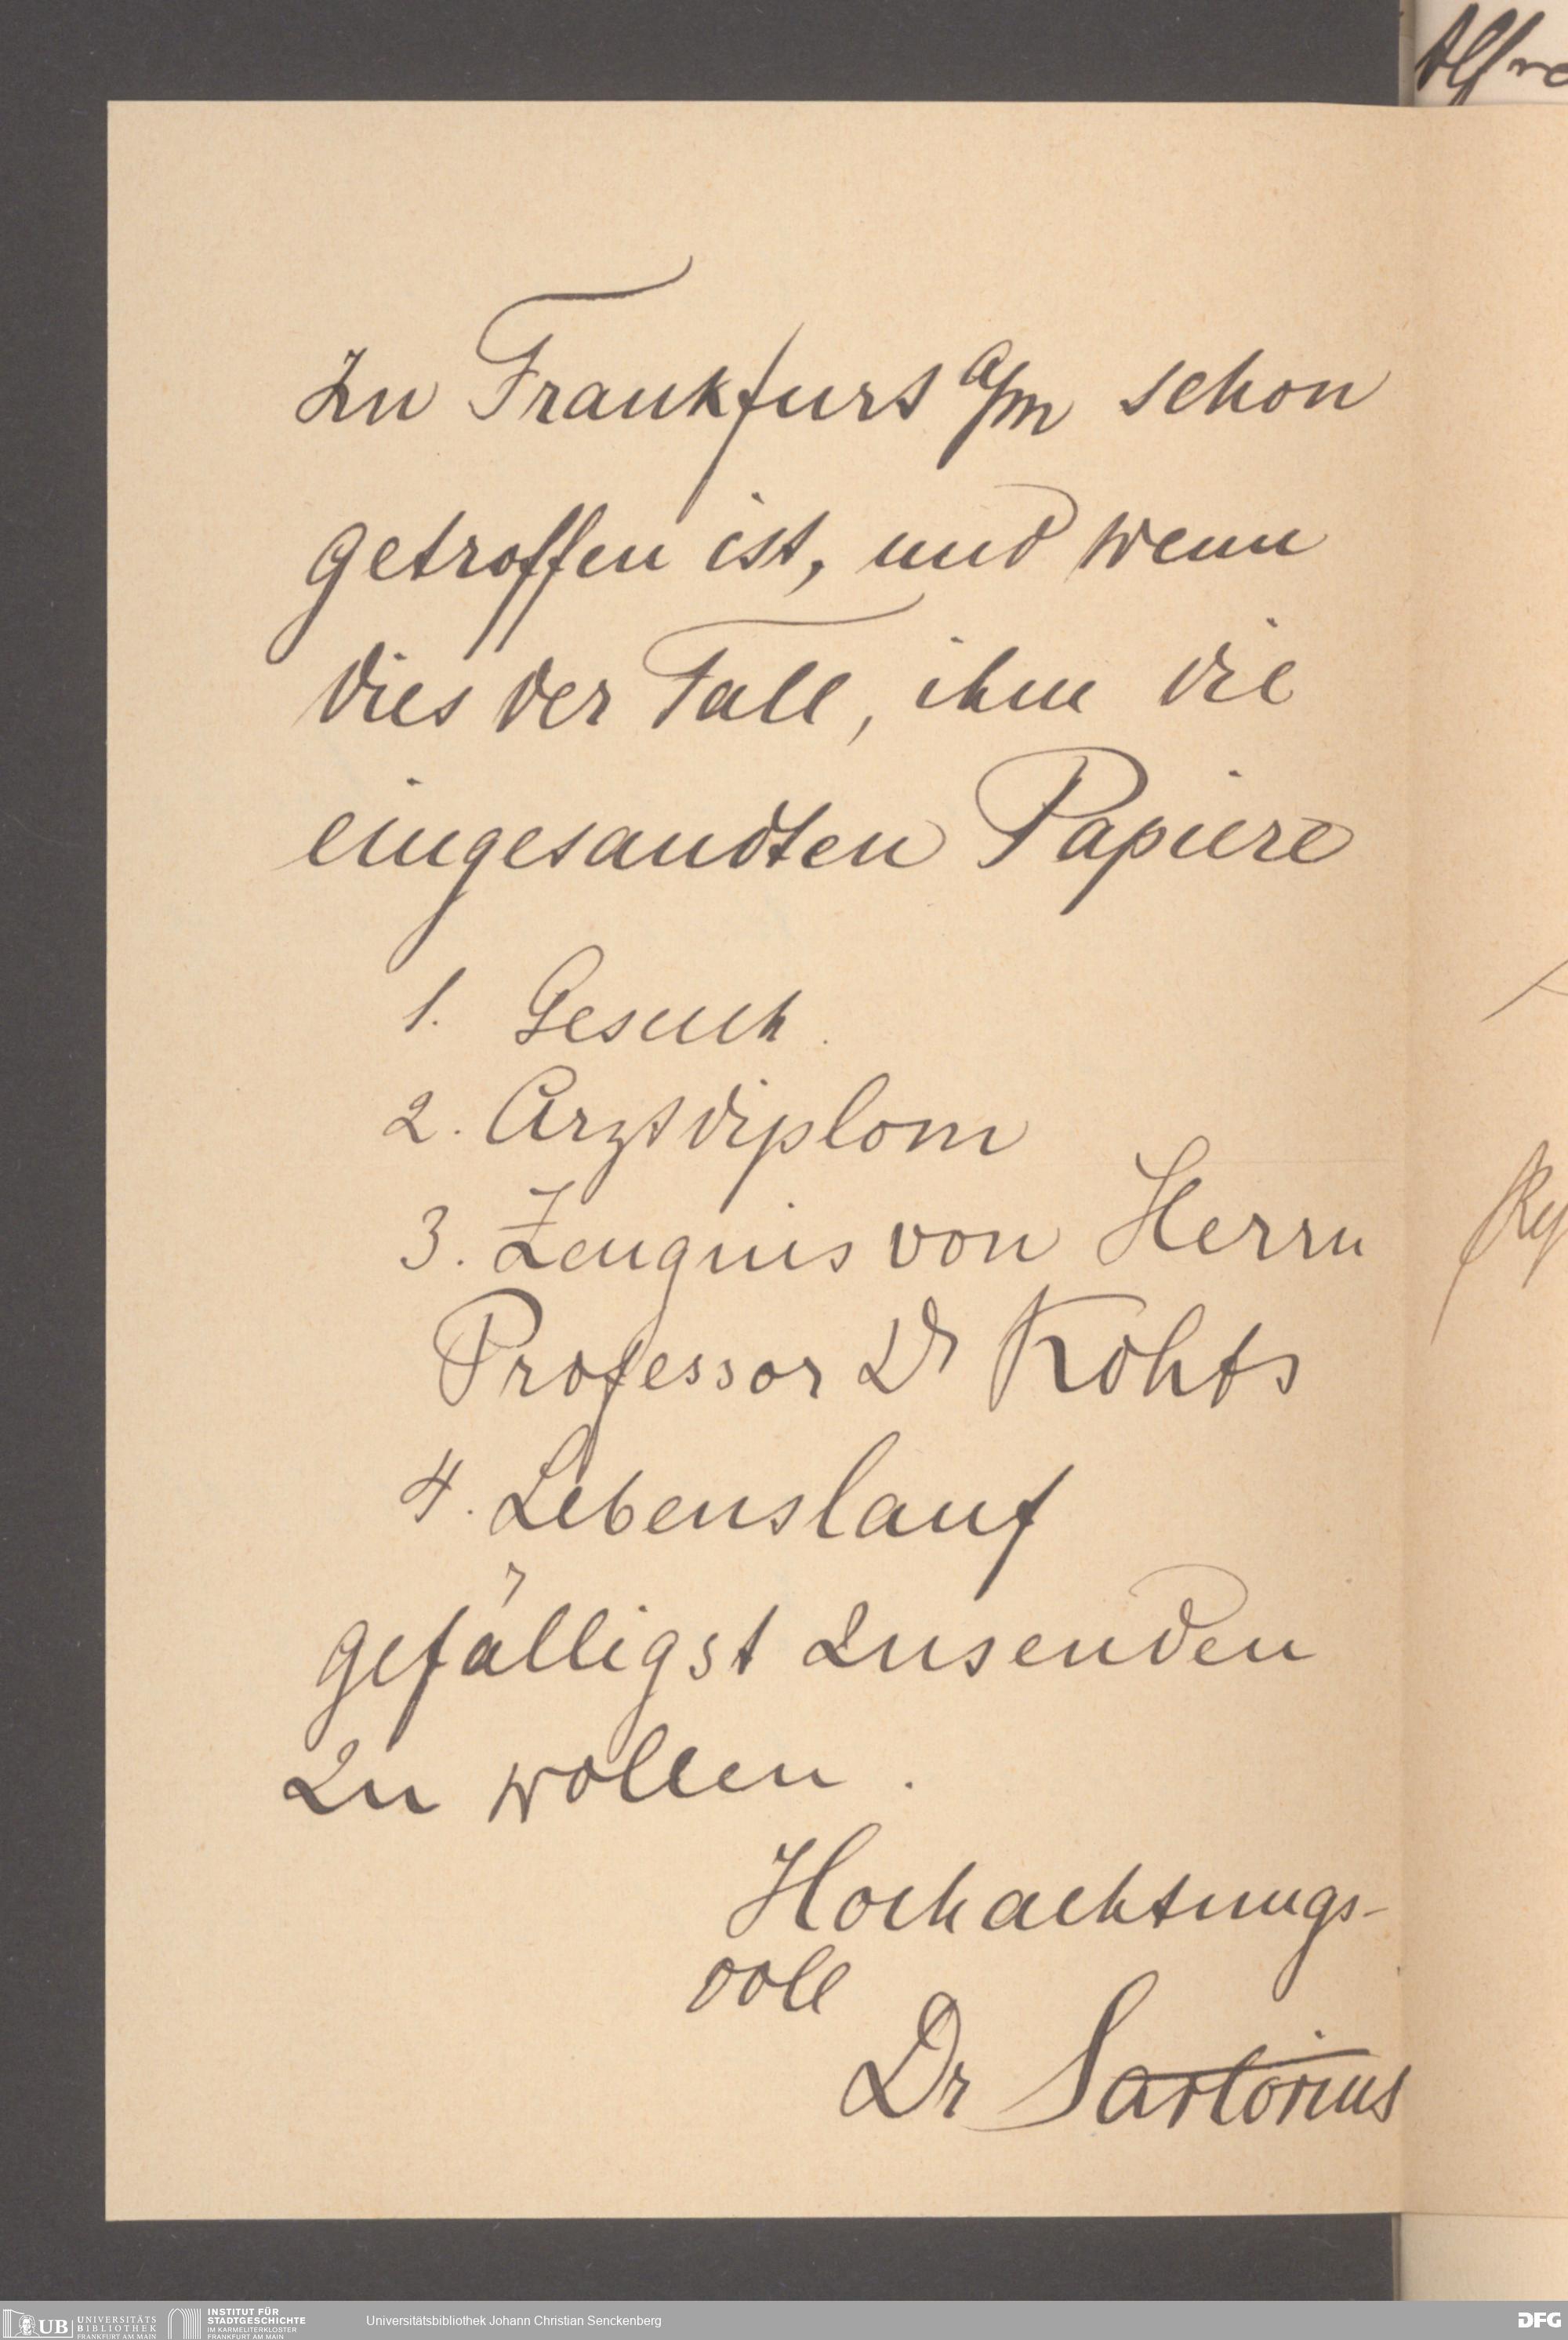 Alfre
zu Frankfurt a/m schon
getroffen ist, und wenn
dies der Fall, ihm die
eingesandten Papiere
1. Gesuch.
2. Arztdiplom
3. Zeugnis von Herrn
Professor Dr Kohts
4. Lebenslauf
gefälligst zusenden
zu wollen.
Hochachtungs-
voll
Dr Sartorius
UB UNIVERSITÄTS
BIBLIOTHEK
FRANKFURT AM MAIN
INSTITUT FÜR
STADTGESCHICHTE
IM KARMELITERKLOSTER
FRANKFURT AM MAIN
Universitätsbibliothek Johann Christian Senckenberg
DFG